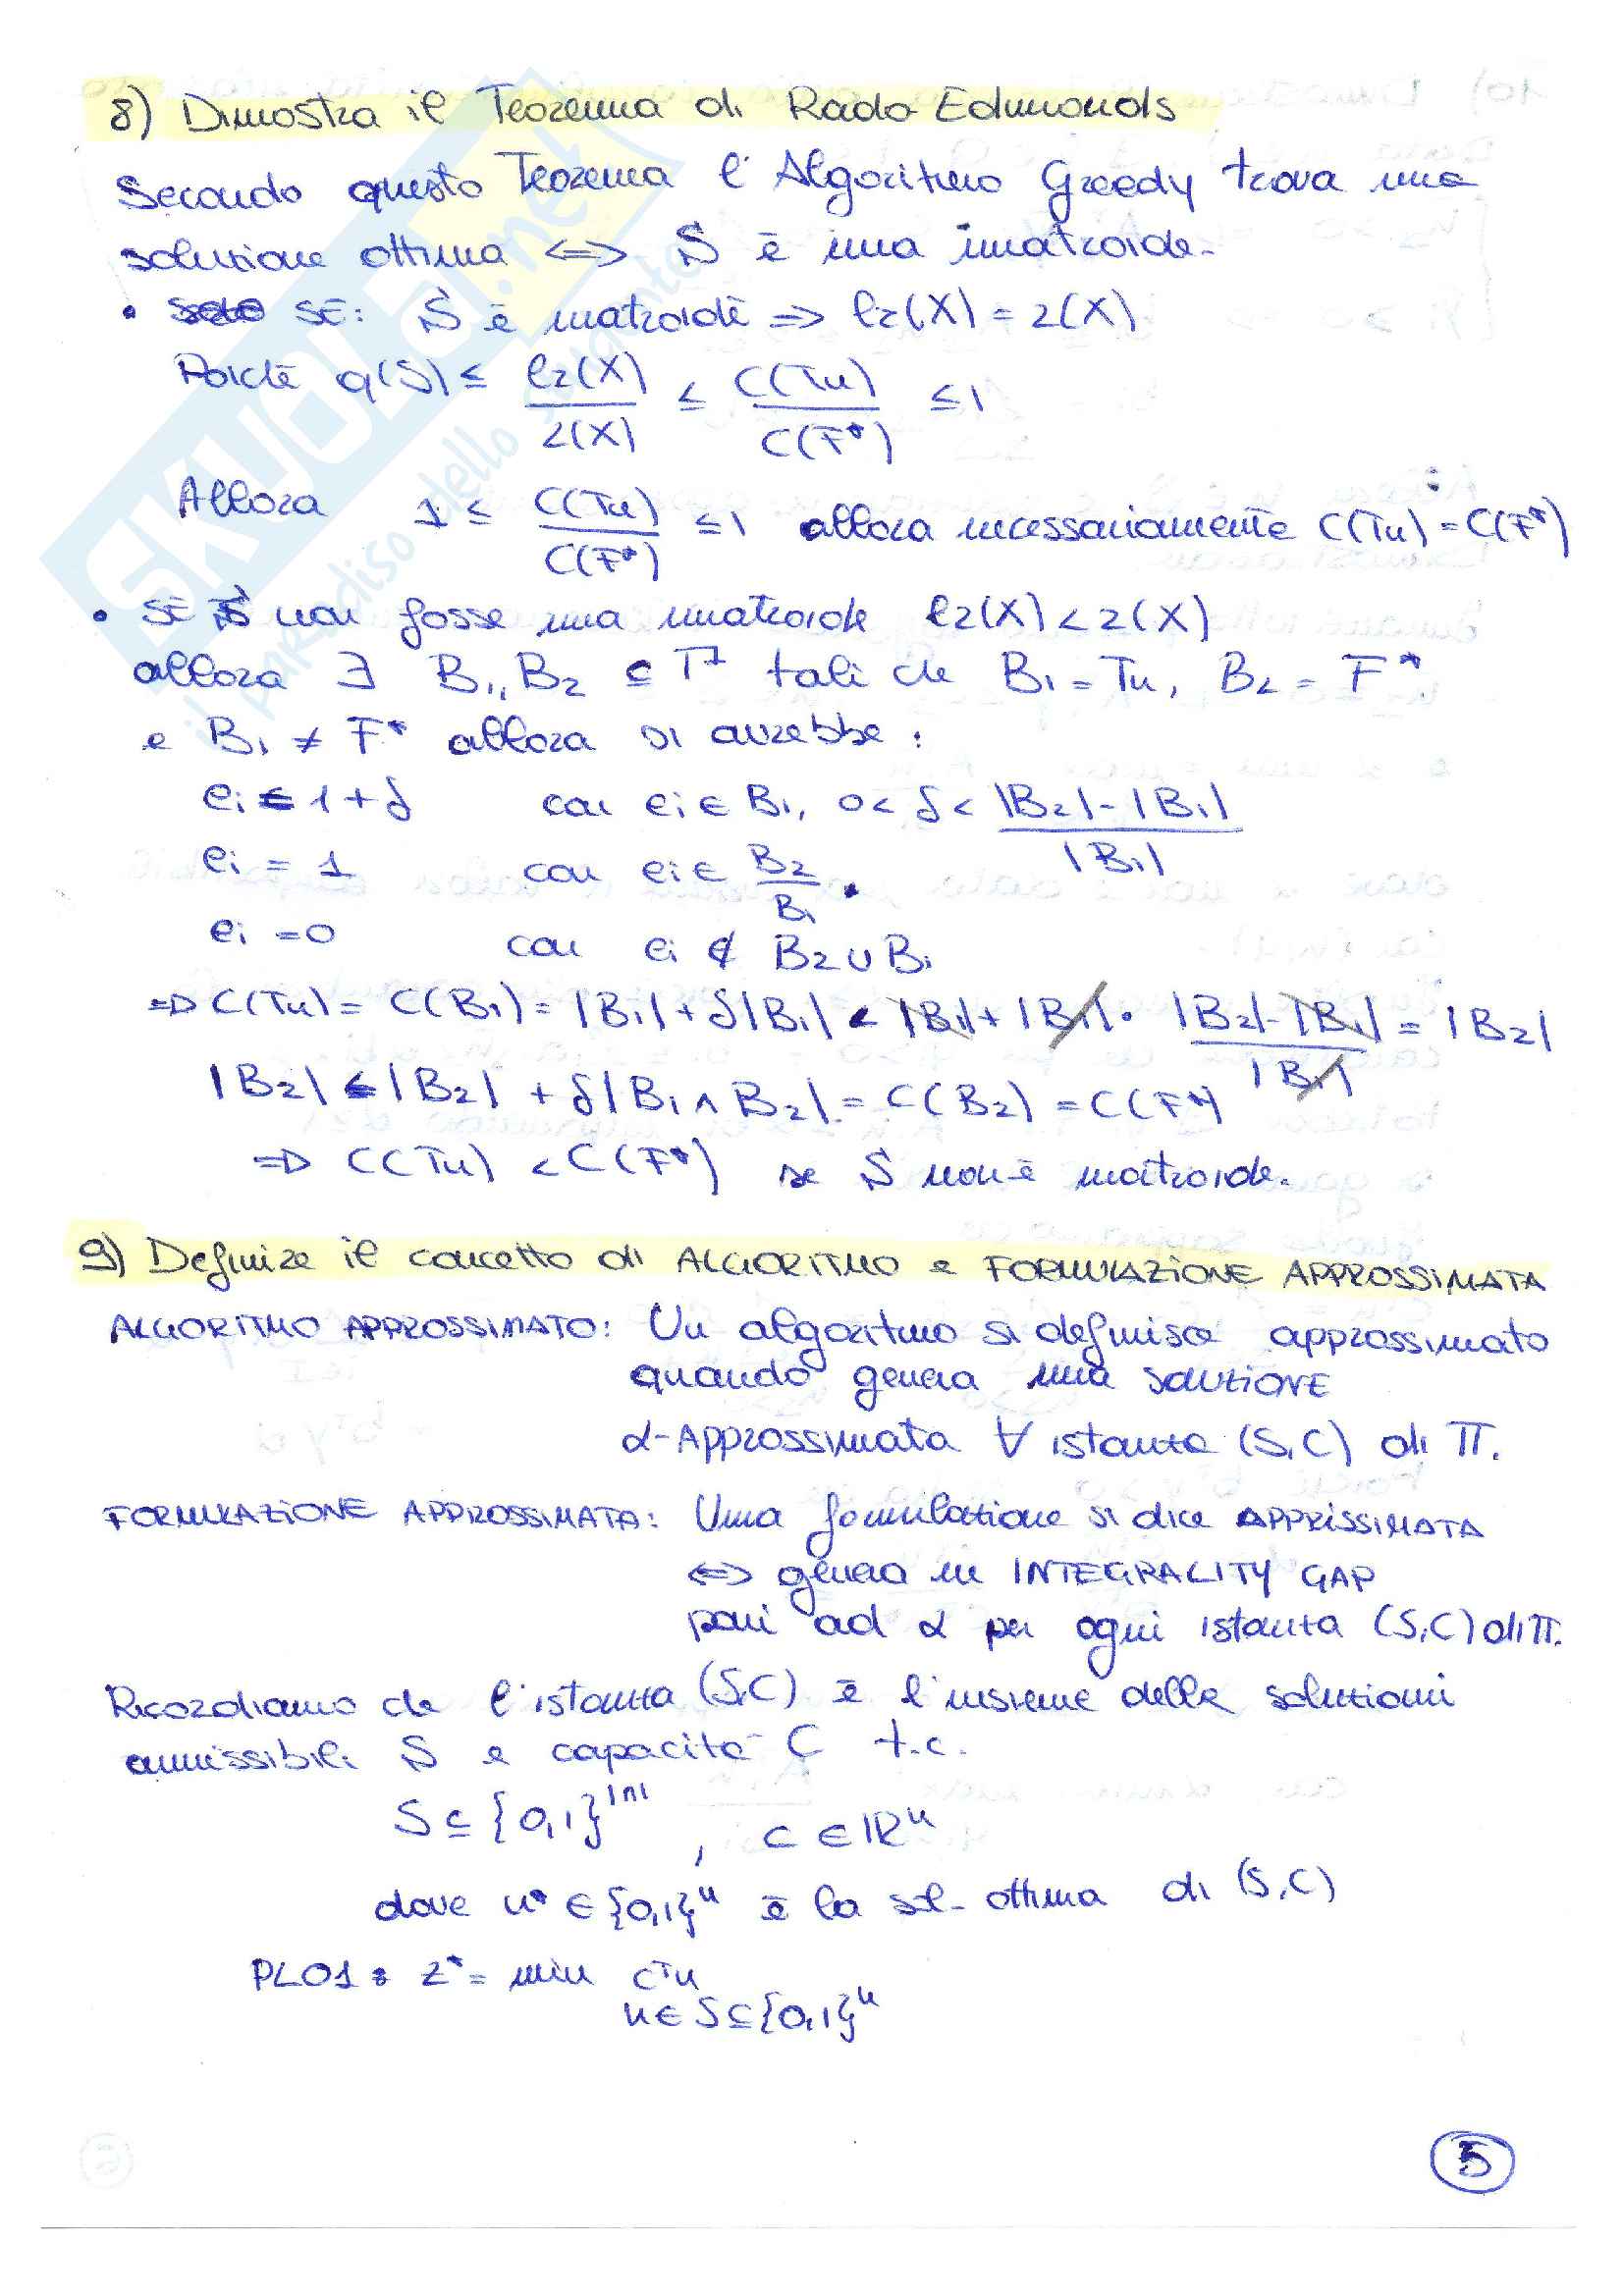 8) Dimostra il Teorema di Rado Edmonds
Secondo questo Teorema l'Algoritmo Greedy trova una
soluzione ottima <=> S è una matroide.
• SE: S è matroide => lr(X) = r(X)
Poiché q(S) ≤ lr(X)/r(X) ≤ C(Tu)/C(F*) ≤ 1
Allora 1 ≤ C(Tu)/C(F*) ≤ 1 allora necessariamente C(Tu) = C(F*)
• SE S non fosse una matroide lr(X) < r(X)
allora ∃ B1, B2 ⊆ T tali che B1 = Tu, B2 = F*
e B1 ≠ F* allora si avrebbe:
ci = 1 + δ con ei ∈ B1, 0 < δ < |B2| - |B1| / |B1|
ci = 1 con ei ∈ B2/B1
ci = 0 con ei ∉ B2 ∪ B1
=> C(Tu) = C(B1) = |B1| + δ|B1| < |B1| + |B1| · |B2| - |B1| / |B1| = |B2|
|B2| ≤ |B2| + δ|B1 ∧ B2| = C(B2) = C(F*)
=> C(Tu) < C(F*) se S non è matroide.
9) Definire il concetto di ALGORITMO e FORMULAZIONE APPROSSIMATA
ALGORITMO APPROSSIMATO: Un algoritmo si definisce approssimato
quando genera una soluzione
α-Approssimata ∀ istanza (S,C) di Π.
FORMULAZIONE APPROSSIMATA: Una formulazione si dice APPRISSIMATA
<=> genera un INTEGRALITY GAP
pari ad α per ogni istanza (S,C) di Π.
Ricordiamo che l'istanza (S,C) è l'insieme delle soluzioni
ammissibili S e capacità C t.c.
S ⊆ {0,1}^|n| , c ∈ IR^n
dove u* ∈ {0,1}^n è la sol. ottima di (S,C)
PL01: z* = min c^T u
u ∈ S ⊆ {0,1}^n
5
SKUOLA.net
il paradiso dello studente